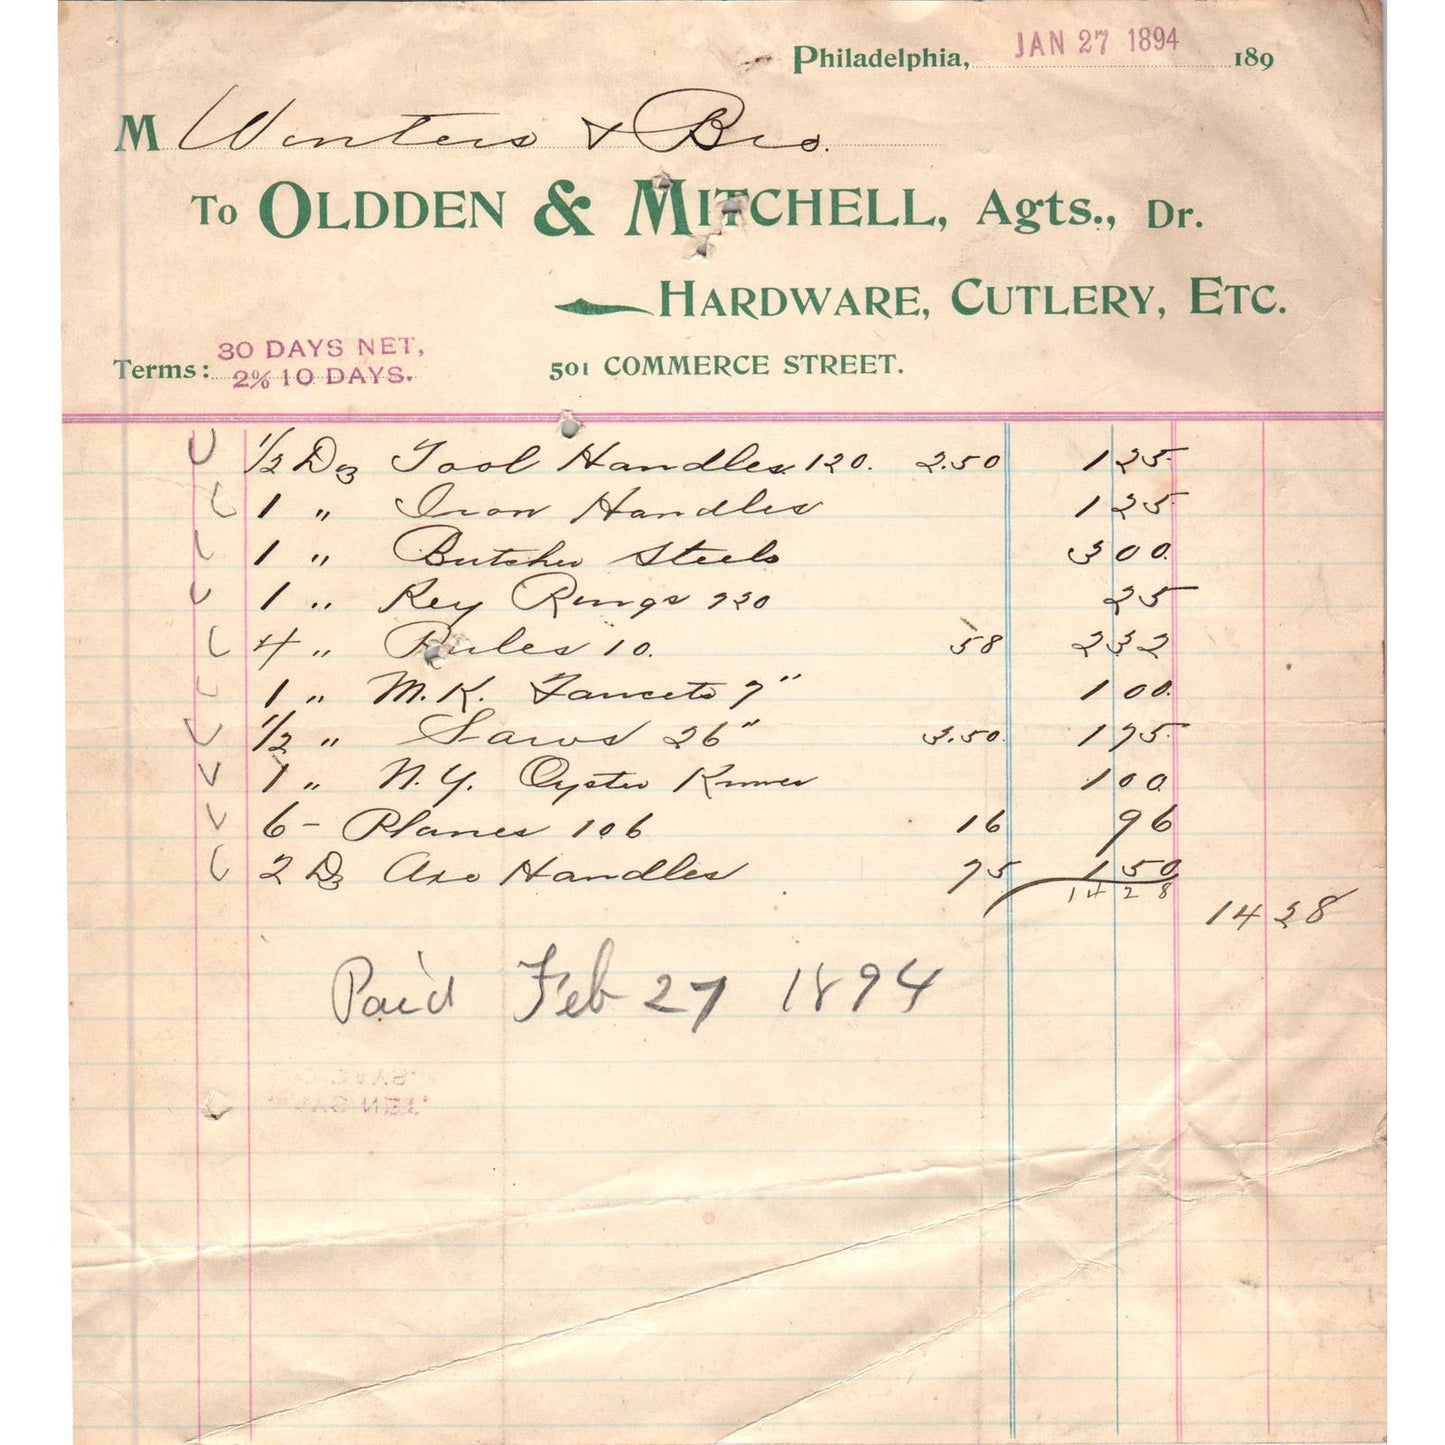 Philadelphia, JAN 27 1894 189
M Winters & Bro.
To OLDDEN & MITCHELL, Agts., Dr.
HARDWARE, CUTLERY, ETC.
Terms: 30 DAYS NET, 2% 10 DAYS.
501 COMMERCE STREET.
1/2 Dz Tool Handles 120. 2.50 1 25
1 " Iron Handles 1 25
1 " Butcher Steels 3 00
1 " Key Rings 720 25
4 " Rules 10. 58 2 32
1 " M.K. Faucets 7" 1 00
1/2 " Saws 26" 3.50 1 75
1 " N.Y. Oyster Knives 1 00
6 - Planes 106 16 96
2 Dz Axe Handles 75 1 50
14 28
14 28
Paid Feb 27 1894